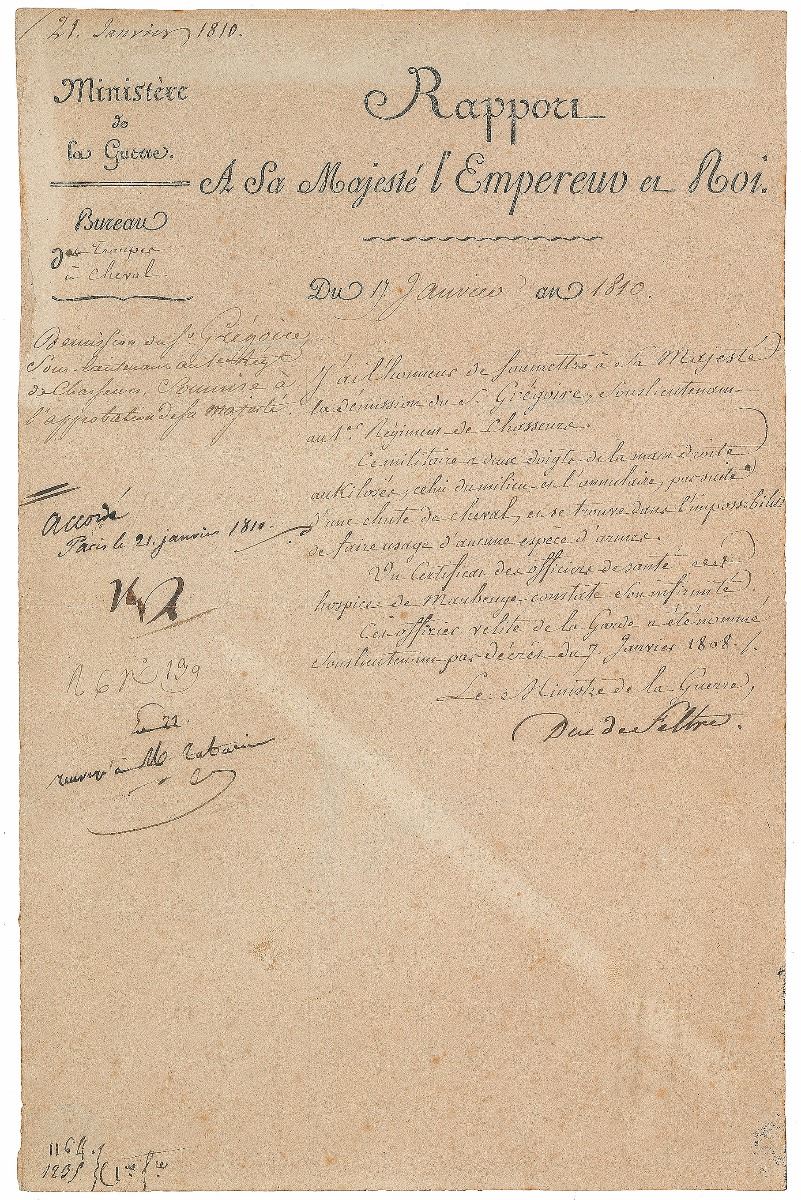 21. Janvier 1810.
Ministère
de
la Guerre.
Bureau
des Troupes
à Cheval
Rapport
A Sa Majesté l'Empereur et Roi.
Du 17 Janvier an 1810.
Démission du Sr. Grégoire
Sous-lieutenant au 1er Regt
de Chasseurs, Soumise à
l'approbation de sa Majesté.
accordé
Paris le 21. janvier 1810.
N
199
Le 22.
renvoyé à M.
J'ai l'honneur de Soumettre à Sa Majesté
la démission du Sr. Grégoire, Souslieutenant
au 1er. Régiment de Chasseurs.
Ce militaire a deux doigts de la main droite
ankilosés, celui du milieu et l'annulaire, par suite
d'une chute de cheval, et se trouve dans l'impossibilité
de faire usage d'aucune espèce d'armes.
Un Certificat des officiers de santé
hospice de Maubeuge constate son infirmité.
Cet officier vélite de la Garde a été nommé
Souslieutenant par décret du 7. Janvier 1808./.
Le Ministre de la Guerre,
Duc de Feltre.
1164.